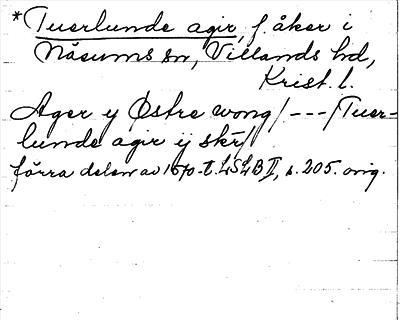 *Tuerlunde agir, f. åker i
Näsums sn, Villands hd,
Krist. l.
Ager y Østre wong/---/Tuer=
lunde agir ij skr/
förra delen av 1570-t. LSLB II, s. 205. orig.